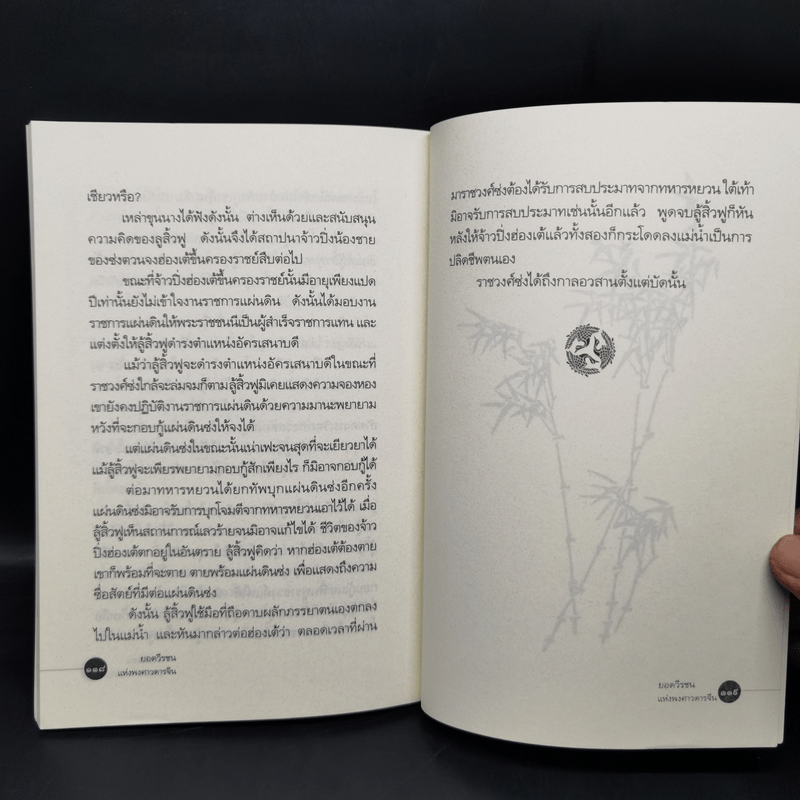 เชียวหรือ?
เหล่าขุนนางได้ฟังดังนั้น ต่างเห็นด้วยและสนับสนุน
ความคิดของลู่สิ้วฟู ดังนั้นจึงได้สถาปนาจ้าวปิ่งน้องชาย
ของซ่งตวนจงฮ่องเต้ขึ้นครองราชย์สืบต่อไป
ขณะที่จ้าวปิ่งฮ่องเต้ขึ้นครองราชย์นั้นมีอายุเพียงแปด
ปีเท่านั้นยังไม่เข้าใจงานราชการแผ่นดิน ดังนั้นได้มอบงาน
ราชการแผ่นดินให้พระราชชนนีเป็นผู้สำเร็จราชการแทน และ
แต่งตั้งให้ลู้สิ้วฟูดำรงตำแหน่งอัครเสนาบดี
แม้ว่าลู้สิ้วฟูจะดำรงตำแหน่งอัครเสนาบดีในขณะที่
ราชวงศ์ซ่งใกล้จะล่มจมก็ตามลู้สิ้วฟูมิเคยแสดงความจองหอง
เขายังคงปฏิบัติงานราชการแผ่นดินด้วยความมานะพยายาม
หวังที่จะกอบกู้แผ่นดินซ่งให้จงได้
แต่แผ่นดินซ่งในขณะนั้นเน่าเฟะจนสุดที่จะเยียวยาได้
แม้ลู้สิ้วฟูจะเพียรพยายามกอบกู้สักเพียงไร ก็มิอาจกอบกู้ได้
ต่อมาทหารหยวนได้ยกทัพบุกแผ่นดินซ่งอีกครั้ง
แผ่นดินซ่งมิอาจรับการบุกโจมตีจากทหารหยวนเอาไว้ได้ เมื่อ
ลู้สิ้วฟูเห็นสถานการณ์เลวร้ายจนมิอาจแก้ไขได้ ชีวิตของจ้าว
ปิ่งฮ่องเต้ตกอยู่ในอันตราย ลู้สิ้วฟูคิดว่า หากฮ่องเต้ต้องตาย
เขาก็พร้อมที่จะตาย ตายพร้อมแผ่นดินซ่ง เพื่อแสดงถึงความ
ซื่อสัตย์ที่มีต่อแผ่นดินซ่ง
ดังนั้น ลู้สิ้วฟูใช้มือที่ถือดาบผลักภรรยาตนเองตกลง
ไปในแม่น้ำ และหันมากล่าวต่อฮ่องเต้ว่า ตลอดเวลาที่ผ่าน
๑๑๘
ยอดวีรชน
แห่งพงศาวดารจีน
มาราชวงศ์ซ่งต้องได้รับการสบประมาทจากทหารหยวน ใต้เท้า
มิอาจรับการสบประมาทเช่นนั้นอีกแล้ว พูดจบลู้สิ้วฟูก็หัน
หลังให้จ้าวปิ่งฮ่องเต้แล้วทั้งสองก็กระโดดลงแม่น้ำเป็นการ
ปลิดชีพตนเอง
ราชวงศ์ซ่งได้ถึงกาลอวสานตั้งแต่บัดนั้น
ยอดวีรชน
แห่งพงศาวดารจีน
๑๑๙